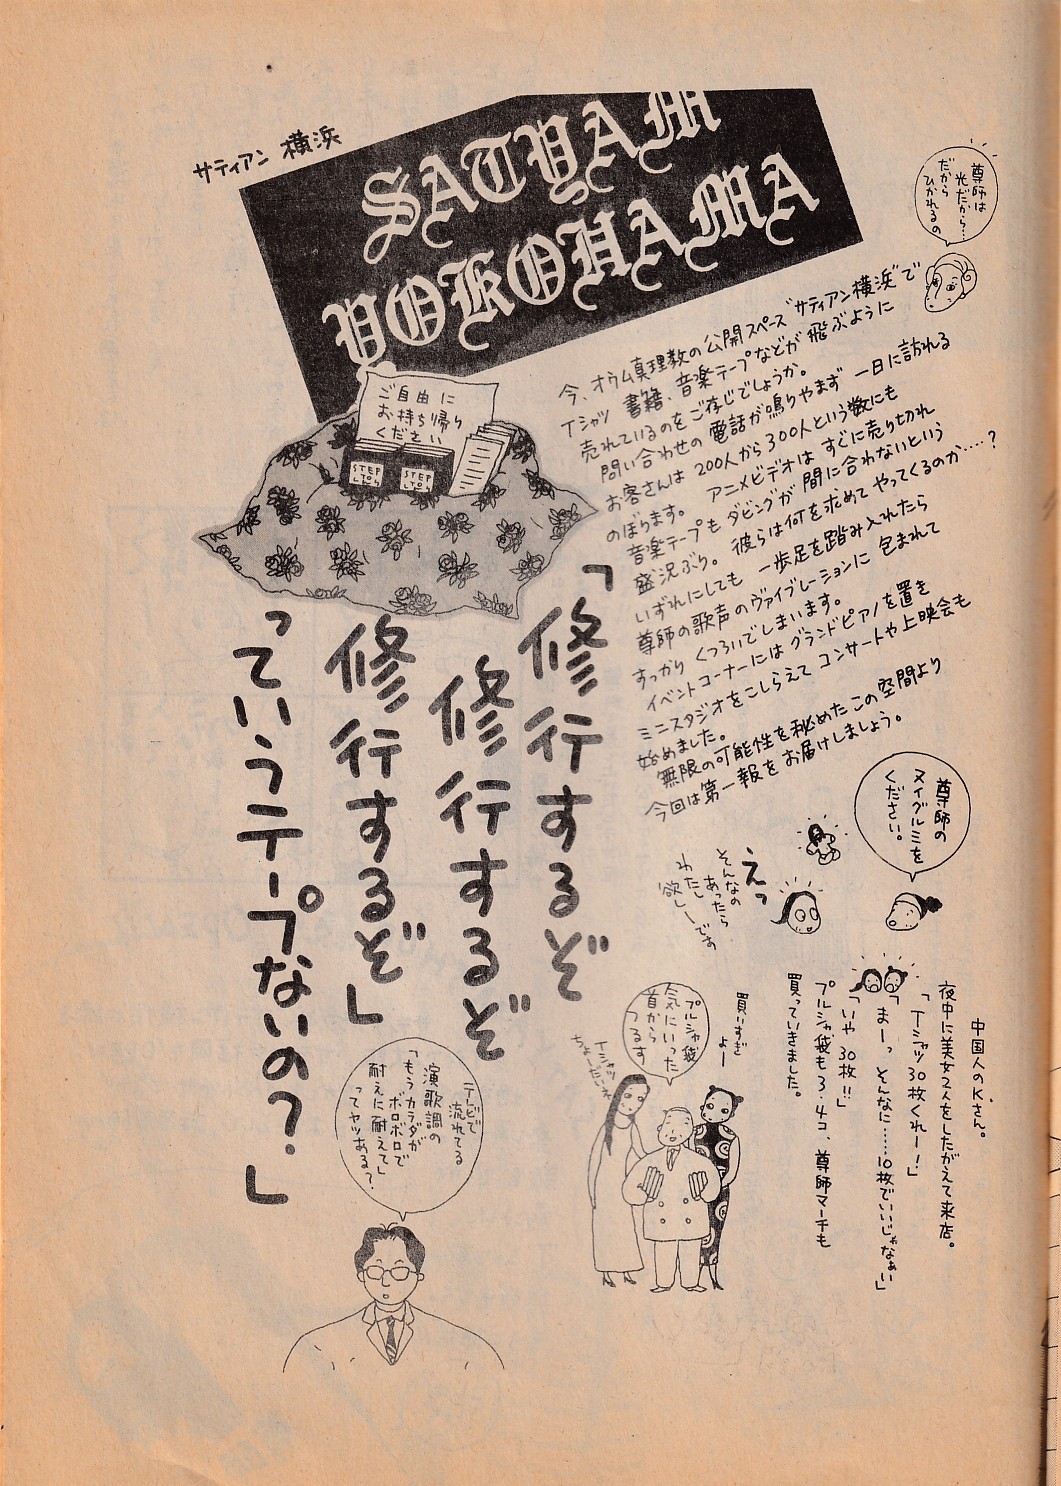 サティアン 横浜
SATYAM
YOKOHAMA
尊師は
光だから…
だから
ひかれるの
今、オウム真理教の公開スペース“サティアン横浜”で
Tシャツ 書籍、音楽テープなどが 飛ぶように
売れているのをご存じでしょうか。
問い合わせの 電話が鳴りやまず 一日に訪れる
お客さんは 200人から300人という数にも
のぼります。 アニメビデオは すぐに売り切れ
音楽テープも ダビングが 間に合わないという
盛況ぶり。 彼らは何を求めて やってくるのか……?
いずれにしても 一歩足を踏み入れたら
尊師の歌声のヴァイブレーションに 包まれて
すっかり くつろいでしまいます。
イベントコーナーには グランドピアノを置き
ミニスタジオをこしらえて コンサートや上映会も
始めました。
無限の可能性を秘めた この空間より
今回は第一報を お届けしましょう。
ご自由に
お持ち帰り
ください
STEP
STEP
「修行するぞ
修行するぞ
修行するぞ」
っていうテープないの?」
尊師の
ヌイグルミを
ください。
えっ
そんなの
あったら
わたし
欲しーです
中国人のK.さん。
夜中に美女2人をしたがえて来店。
「Tシャツ30枚くれー!」
「まーっ そんなに……10枚でいいじゃなぁい」
「いや 30枚!!」
プルシャ袋も3・4コ、尊師マーチも
買っていきました。
買いすぎ
よー
プルシャ袋
気にいった
首から
つるす
Tシャツ
ちょーだいね
テレビで
流れてる
演歌調の
「もうカラダが
ボロボロで
耐えに耐えて」
ってヤツある?